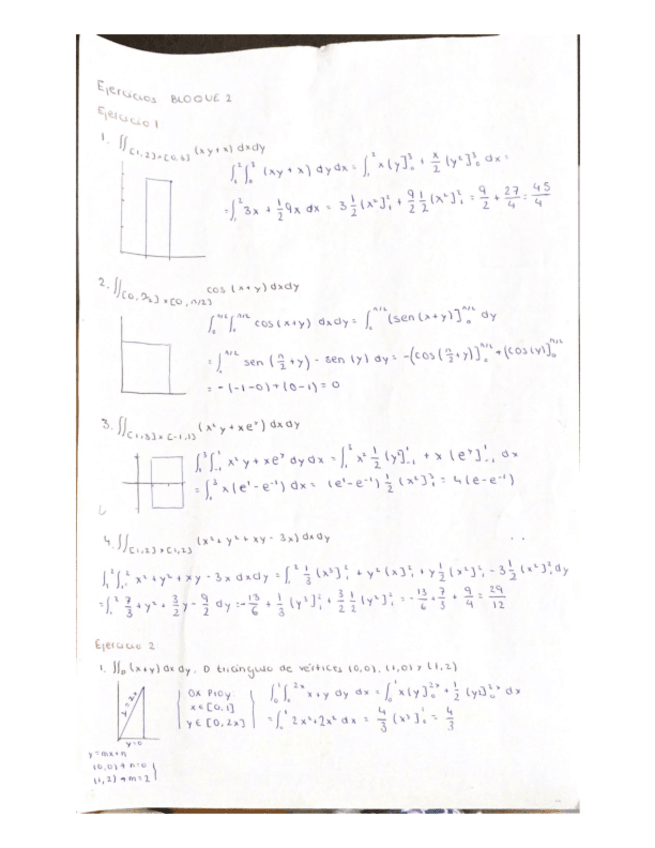 Ejercicios BLOQUE 2
Ejercicio 1
1. ∬[1,2]×[0,3] (xy+x) dxdy
∫₁²∫₀³ (xy+x) dydx = ∫₁² x(y]₀³ + x/2 (y²]₀³ dx =
= ∫₁² 3x + 1/2 9x dx = 3 1/2 (x²]₁² + 9/2 1/2 (x²]₁² = 9/2 + 27/4 = 45/4
2. ∬[0,π/2]×[0,π/2] cos(x+y) dxdy
∫₀^π/2 ∫₀^π/2 cos(x+y) dxdy = ∫₀^π/2 (sen(x+y)]₀^π/2 dy
= ∫₀^π/2 sen(π/2+y) - sen(y) dy = -(cos(π/2+y)]₀^π/2 + (cos(y)]₀^π/2
= -(-1-0)+(0-1) = 0
3. ∬[1,3]×[-1,1] (x²y+xeʸ) dxdy
∫₁³∫₋₁¹ x²y+xeʸ dydx = ∫₁³ x² 1/2 (y]₋₁¹ + x(eʸ]₋₁¹ dx
= ∫₁³ x(e¹-e⁻¹) dx = (e¹-e⁻¹) 1/2 (x²]₁³ = 4(e-e⁻¹)
4. ∬[1,2]×[1,2] (x²+y²+xy-3x) dxdy
∫₁²∫₁² x²+y²+xy-3x dxdy = ∫₁² 1/3 (x³]₁² + y²(x]₁² + y 1/2 (x²]₁² - 3 1/2 (x²]₁² dy
= ∫₁² 7/3 + y² + 3/2 y - 9/2 dy = -13/6 + 1/3 (y³]₁² + 3/2 1/2 (y²]₁² = -13/6 + 7/3 + 9/4 = 29/12
Ejercicio 2
1. ∬D (x+y) dx dy. D triángulo de vértices (0,0), (1,0) y (1,2)
y=2x
y=0
OX Proy
x∈[0,1]
y∈[0,2x]
∫₀¹∫₀²ˣ x+y dy dx = ∫₀¹ x(y]₀²ˣ + 1/2 (y²]₀²ˣ dx
= ∫₀¹ 2x²+2x² dx = 4/3 (x³]₀¹ = 4/3
y=mx+n
(0,0) → n=0
(1,2) → m=2